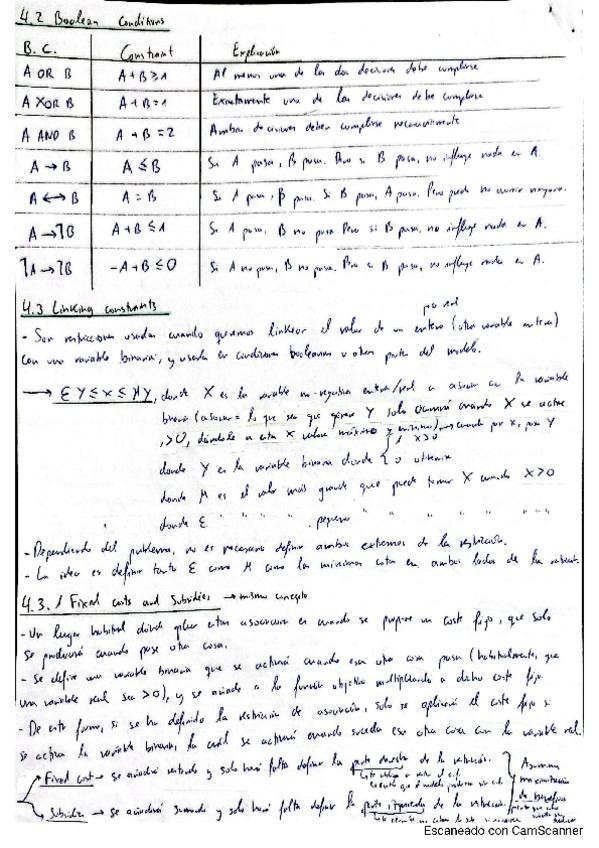 4.2 Boolean Conditions
B.C. Constraint Explicación
A OR B A+B≥1 Al menos una de las dos decisiones debe cumplirse
A XOR B A+B=1 Exactamente una de las decisiones debe cumplirse
A AND B A+B=2 Ambas decisiones deben cumplirse necesariamente
A → B A≤B Si A pasa, B pasa. Pero si B pasa, no influye nada en A.
A ↔ B A=B Si A pasa, B pasa. Si B pasa, A pasa. Pero puede no ocurrir ninguna.
A → ⌉B A+B≤1 Si A pasa, B no pasa Pero si B pasa, no influye nada en A.
⌉A → ⌉B -A+B≤0 Si A no pasa, B no pasa. Pero si B pasa, no influye nada en A.
4.3 Linking constraints
- Son restricciones usadas cuando queremos linkear el valor de un entero (otra variable entera)
con una variable binaria, y usarla en condiciones booleanas u otra parte del modelo.
→ εY≤X≤MY, donde X es la variable no-negativa entera/real a asociar con la variable
binaria (asociar = lo que sea que genere Y solo ocurrirá cuando X se active
>0, dándole a esta X valores máximo y mínimo) → cuando pasa X, pasa Y
donde Y es la variable binaria donde { 1 X>0
0 otherwise
donde M es el valor más grande que puede tomar X cuando X>0
donde ε " " " pequeño " " " " "
- Dependiendo del problema, no es necesario definir ambos extremos de la restricción.
- La idea es definir tanto ε como M como las mínimas cotas en ambos lados de la restricción.
4.3.1 Fixed costs and Subsidies → mismo concepto
- Un lugar habitual donde aplicar estas asociaciones es cuando se propone un coste fijo, que solo
se producirá cuando pase otra cosa.
- Se define una variable binaria que se activará cuando esa otra cosa pasa (habitualmente, que
una variable real sea >0), y se añade a la función objetivo multiplicando a dicho coste fijo.
- De esta forma, si se ha definido la restricción de asociación, solo se aplicará el coste fijo si
se activa la variable binaria, la cuál se activará cuando suceda esa otra cosa con la variable real.
Fixed cost → se añadirá restando y solo hará falta definir la parte derecha de la restricción.
Subsidies → se añadirá sumando y solo hará falta definir la parte izquierda de la restricción.
Asumimos
maximización
de beneficio
Escaneado con CamScanner